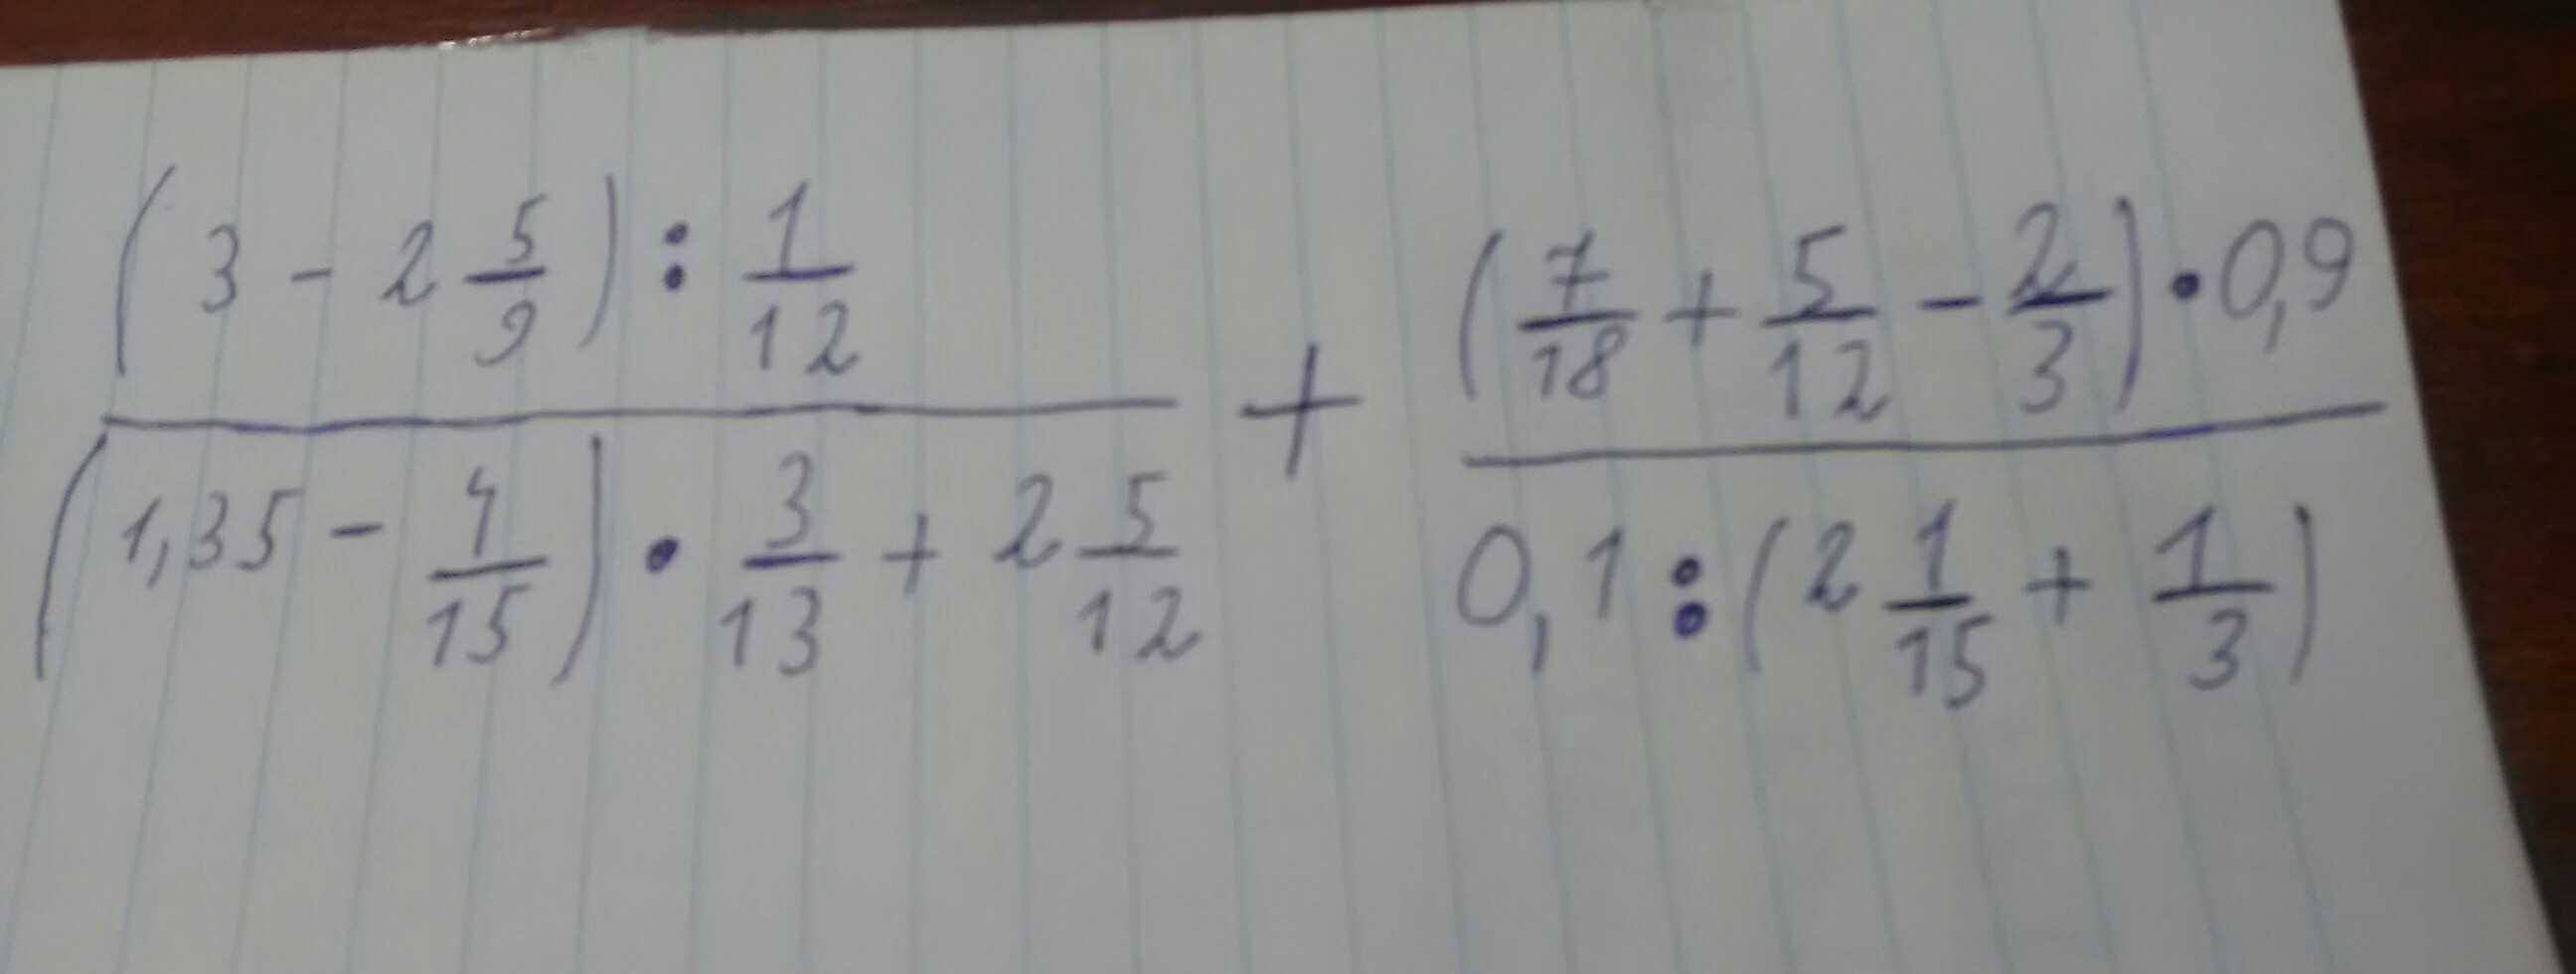 (3 - 2 5/9) : 1/12
(1,35 - 4/15) • 3/13 + 2 5/12
+
(7/18 + 5/12 - 2/3) • 0,9
0,1 : (2 1/15 + 1/3)